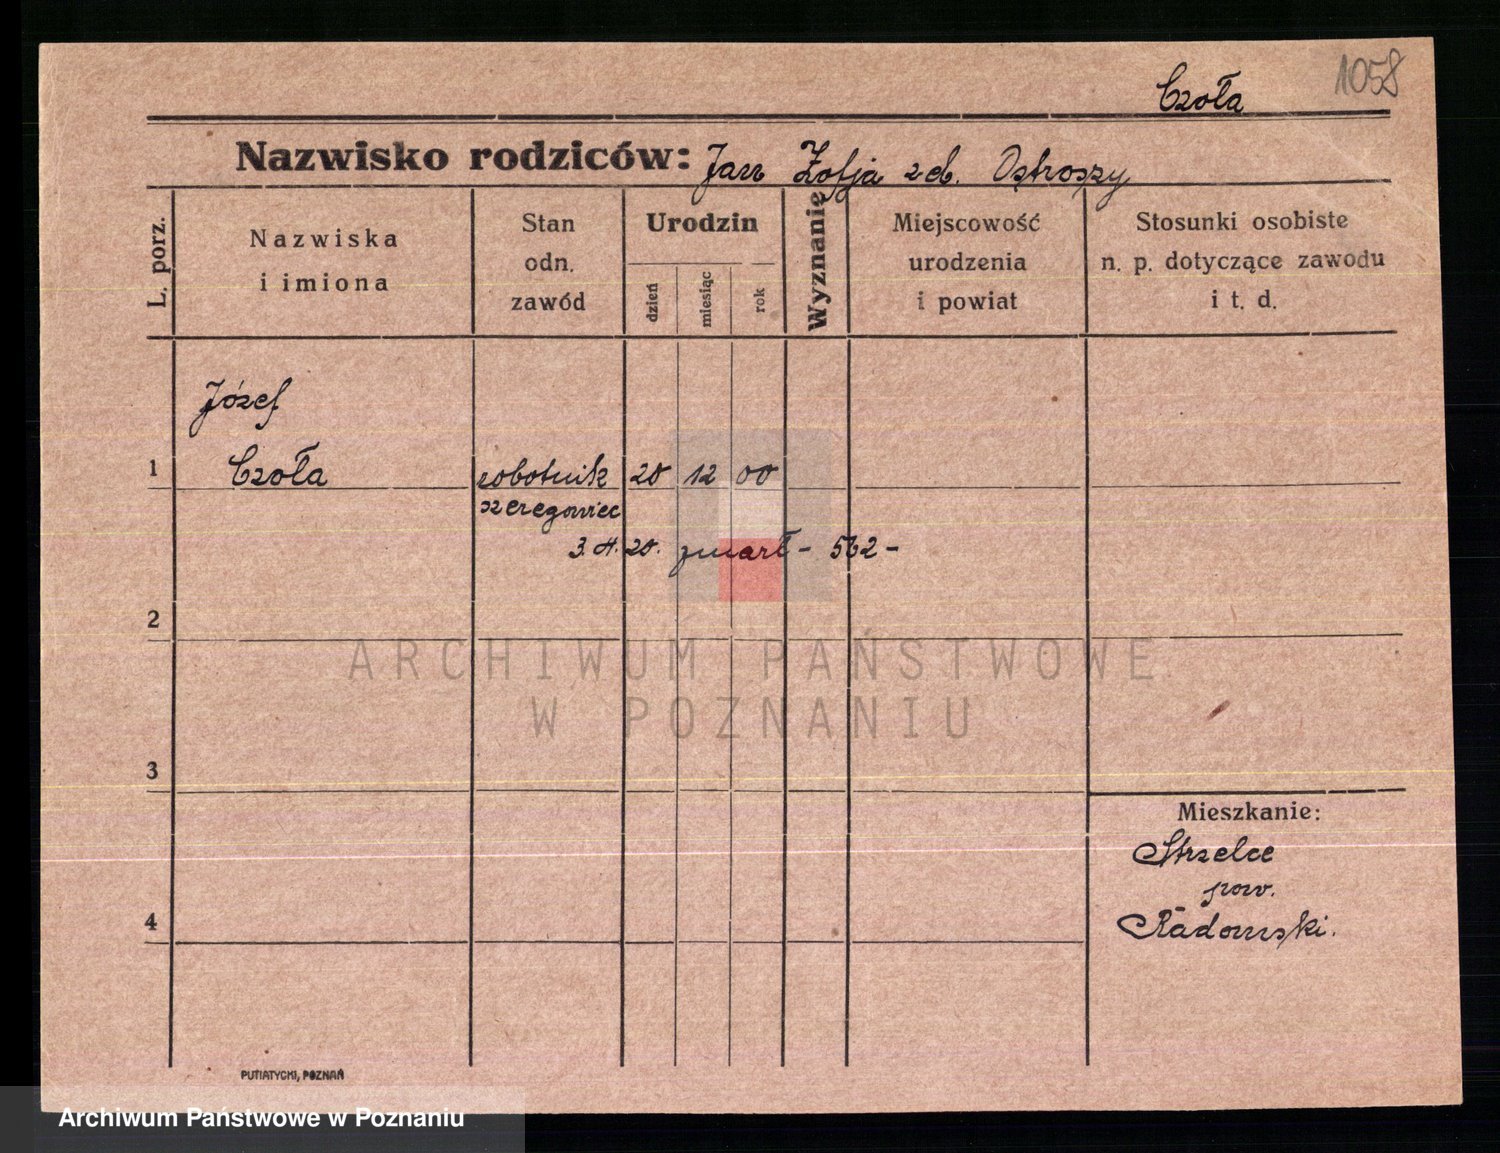 1058
Czoła
Nazwisko rodziców: Jan Zofja z d. Ostroszy
L. porz.
Nazwiska
i imiona
Stan
odn.
zawód
Urodzin
dzień
miesiąc
rok
Wyznanię
Miejscowość
urodzenia
i powiat
Stosunki osobiste
n. p. dotyczące zawodu
i t. d.
Józef
1 Czoła robotnik 20 12 00
szeregowiec
20. zmarł - 562 -
2
ARCHIWUM PAŃSTWOWE
W POZNANIU
3
Mieszkanie:
Strzelce
pow.
4 Radomski.
PUTIATYCKI, POZNAŃ
Archiwum Państwowe w Poznaniu